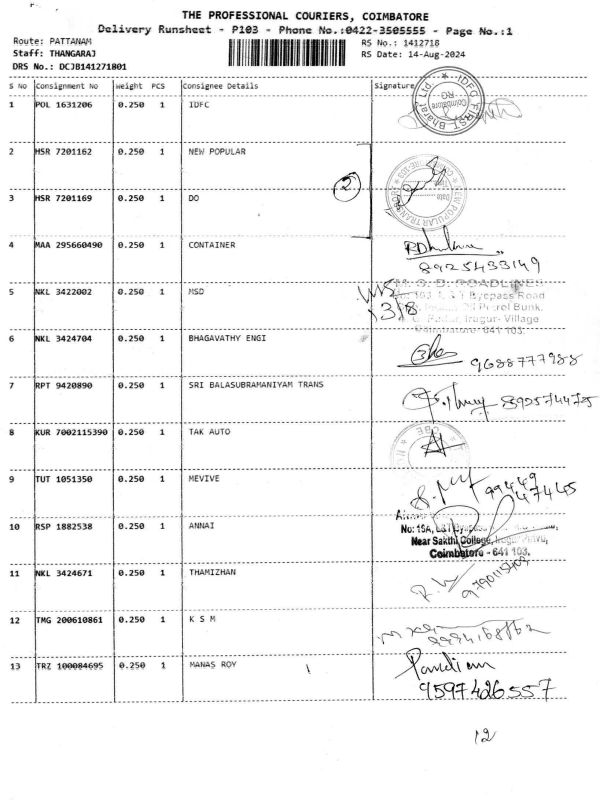 THE PROFESSIONAL COURIERS, COIMBATORE
Delivery Runsheet - P103 - Phone No.:0422-3505555 - Page No.:1
Route: PATTANAM
RS No.: 1412718
Staff: THANGARAJ
RS Date: 14-Aug-2024
DRS No.: DCJB141271801
S No Consignment No Weight PCS Consignee Details Signature
1 POL 1631206 0.250 1 IDFC
IDFC FIRST Bharat Ltd.
Coimbatore
RO
2 HSR 7201162 0.250 1 NEW POPULAR
2
NEW POPULAR TRANSPORT
3 HSR 7201169 0.250 1 DO
4 MAA 295660490 0.250 1 CONTAINER
8925433149
5 NKL 3422002 0.250 1 MSD
13/8
M. S. D. ROADLINES
Byepass Road
Petrol Bunk,
Irugur- Village
Coimbatore- 641 103.
6 NKL 3424704 0.250 1 BHAGAVATHY ENGI
9688777988
7 RPT 9420890 0.250 1 SRI BALASUBRAMANIYAM TRANS
8925744725
8 KUR 7002115390 0.250 1 TAK AUTO
CBE
9 TUT 1051350 0.250 1 MEVIVE
99449
47445
10 RSP 1882538 0.250 1 ANNAI
No: 19A, L&T Bypass
Near Sakthi College,
Coimbatore - 641 103.
11 NKL 3424671 0.250 1 THAMIZHAN
12 TMG 200610861 0.250 1 K S M
13 TRZ 100084695 0.250 1 MANAS ROY
Pandian
9597426557
12